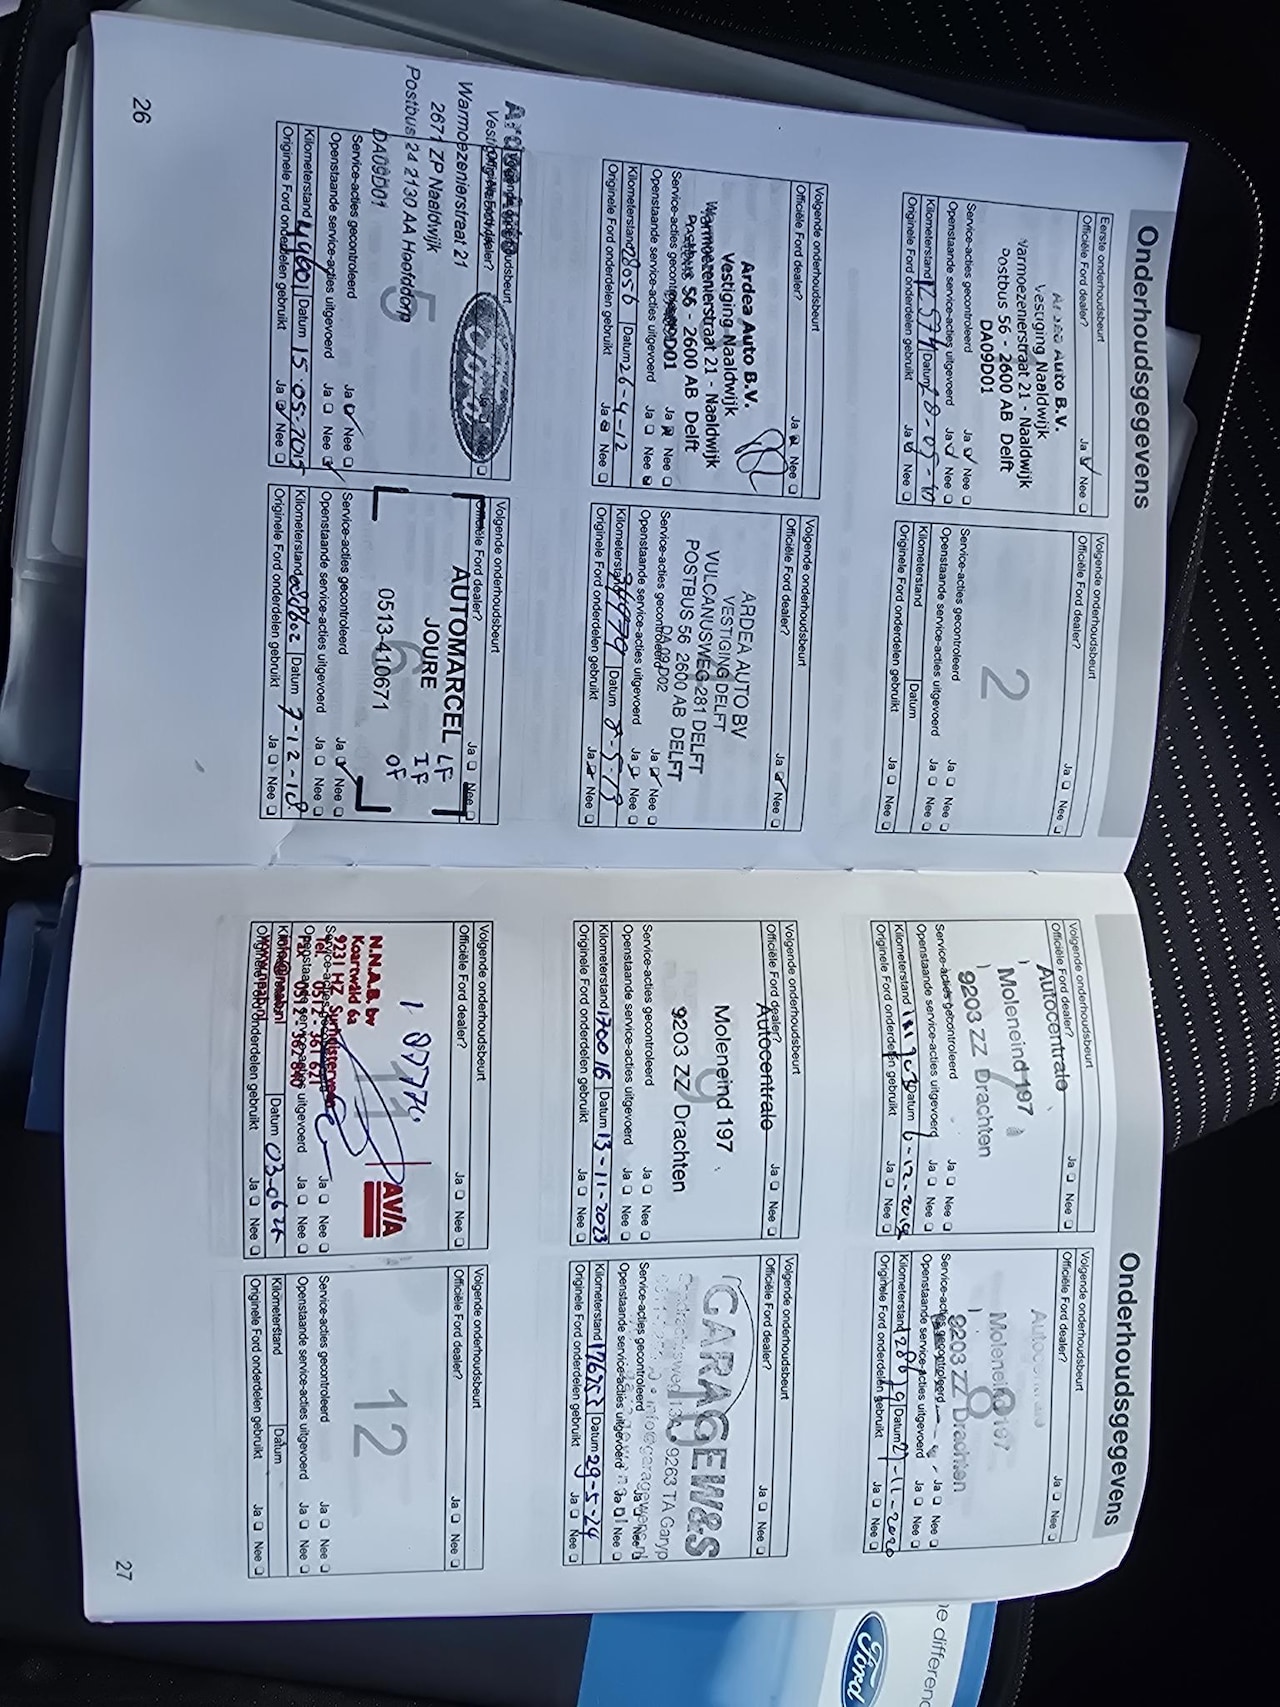 Onderhoudsgegevens
Eerste onderhoudsbeurt
Officiële Ford dealer? Ja Nee
Ardea Auto B.V.
Vestiging Naaldwijk
Warmoezenierstraat 21 - Naaldwijk
Postbus 56 - 2600 AB Delft
DA09D01
Service-acties gecontroleerd Ja Nee
Openstaande service-acties uitgevoerd Ja Nee
Kilometerstand Datum
Originele Ford onderdelen gebruikt Ja Nee
Volgende onderhoudsbeurt
Officiële Ford dealer? Ja Nee
2
Service-acties gecontroleerd Ja Nee
Openstaande service-acties uitgevoerd Ja Nee
Kilometerstand Datum
Originele Ford onderdelen gebruikt Ja Nee
Volgende onderhoudsbeurt
Officiële Ford dealer? Ja Nee
Ardea Auto B.V.
Vestiging Naaldwijk
Warmoezenierstraat 21 - Naaldwijk
Postbus 56 - 2600 AB Delft
DA09D01
Service-acties gecontroleerd Ja Nee
Openstaande service-acties uitgevoerd Ja Nee
Kilometerstand 28056 Datum 26-4-12
Originele Ford onderdelen gebruikt Ja Nee
Volgende onderhoudsbeurt
Officiële Ford dealer? Ja Nee
ARDEA AUTO BV
VESTIGING DELFT
VULCANUSWEG 281 DELFT
POSTBUS 56 2600 AB DELFT
DA09D02
Service-acties gecontroleerd Ja Nee
Openstaande service-acties uitgevoerd Ja Nee
Kilometerstand Datum 8-5-13
Originele Ford onderdelen gebruikt Ja Nee
Ardea Auto
Warmoezenierstraat 21
2671 ZP Naaldwijk
Postbus 24 2130 AA Hoofddorp
DA09D01
5
Service-acties gecontroleerd Ja Nee
Openstaande service-acties uitgevoerd Ja Nee
Kilometerstand 49601 Datum 15-05-2015
Originele Ford onderdelen gebruikt Ja Nee
Volgende onderhoudsbeurt
Officiële Ford dealer? Ja Nee
AUTOMARCEL LF
JOURE IF
6 OF
0513-410671
Service-acties gecontroleerd Ja Nee
Openstaande service-acties uitgevoerd Ja Nee
Kilometerstand Datum 7-12-18
Originele Ford onderdelen gebruikt Ja Nee
26
Onderhoudsgegevens
Volgende onderhoudsbeurt
Officiële Ford dealer? Ja Nee
Autocentrale
Moleneind 197
9203 ZZ Drachten
7
Service-acties gecontroleerd Ja Nee
Openstaande service-acties uitgevoerd Ja Nee
Kilometerstand Datum 6-12-2019
Originele Ford onderdelen gebruikt Ja Nee
Volgende onderhoudsbeurt
Officiële Ford dealer? Ja Nee
Autocentrale
Moleneind 197
9203 ZZ Drachten
8
Service-acties gecontroleerd Ja Nee
Openstaande service-acties uitgevoerd Ja Nee
Kilometerstand Datum 27-11-2020
Originele Ford onderdelen gebruikt Ja Nee
Volgende onderhoudsbeurt
Officiële Ford dealer? Ja Nee
Autocentrale
Moleneind 197
9203 ZZ Drachten
9
Service-acties gecontroleerd Ja Nee
Openstaande service-acties uitgevoerd Ja Nee
Kilometerstand 170016 Datum 13-11-2023
Originele Ford onderdelen gebruikt Ja Nee
Volgende onderhoudsbeurt
Officiële Ford dealer? Ja Nee
GARAGE W&S
9263 TA Garyp
Service-acties gecontroleerd Ja Nee
Openstaande service-acties uitgevoerd Ja Nee
Kilometerstand Datum 29-5-24
Originele Ford onderdelen gebruikt Ja Nee
Volgende onderhoudsbeurt
Officiële Ford dealer? Ja Nee
11
AVIA
N.N.A.B. bv
Koartwâld 6a
9231 HZ Surhuisterveen
Tel. 0512 - 361 621
Fax 0512 - 362 840
Service-acties gecontroleerd Ja Nee
Openstaande service-acties uitgevoerd Ja Nee
Kilometerstand Datum
Originele Ford onderdelen gebruikt Ja Nee
Volgende onderhoudsbeurt
Officiële Ford dealer? Ja Nee
12
Service-acties gecontroleerd Ja Nee
Openstaande service-acties uitgevoerd Ja Nee
Kilometerstand Datum
Originele Ford onderdelen gebruikt Ja Nee
27
Ford